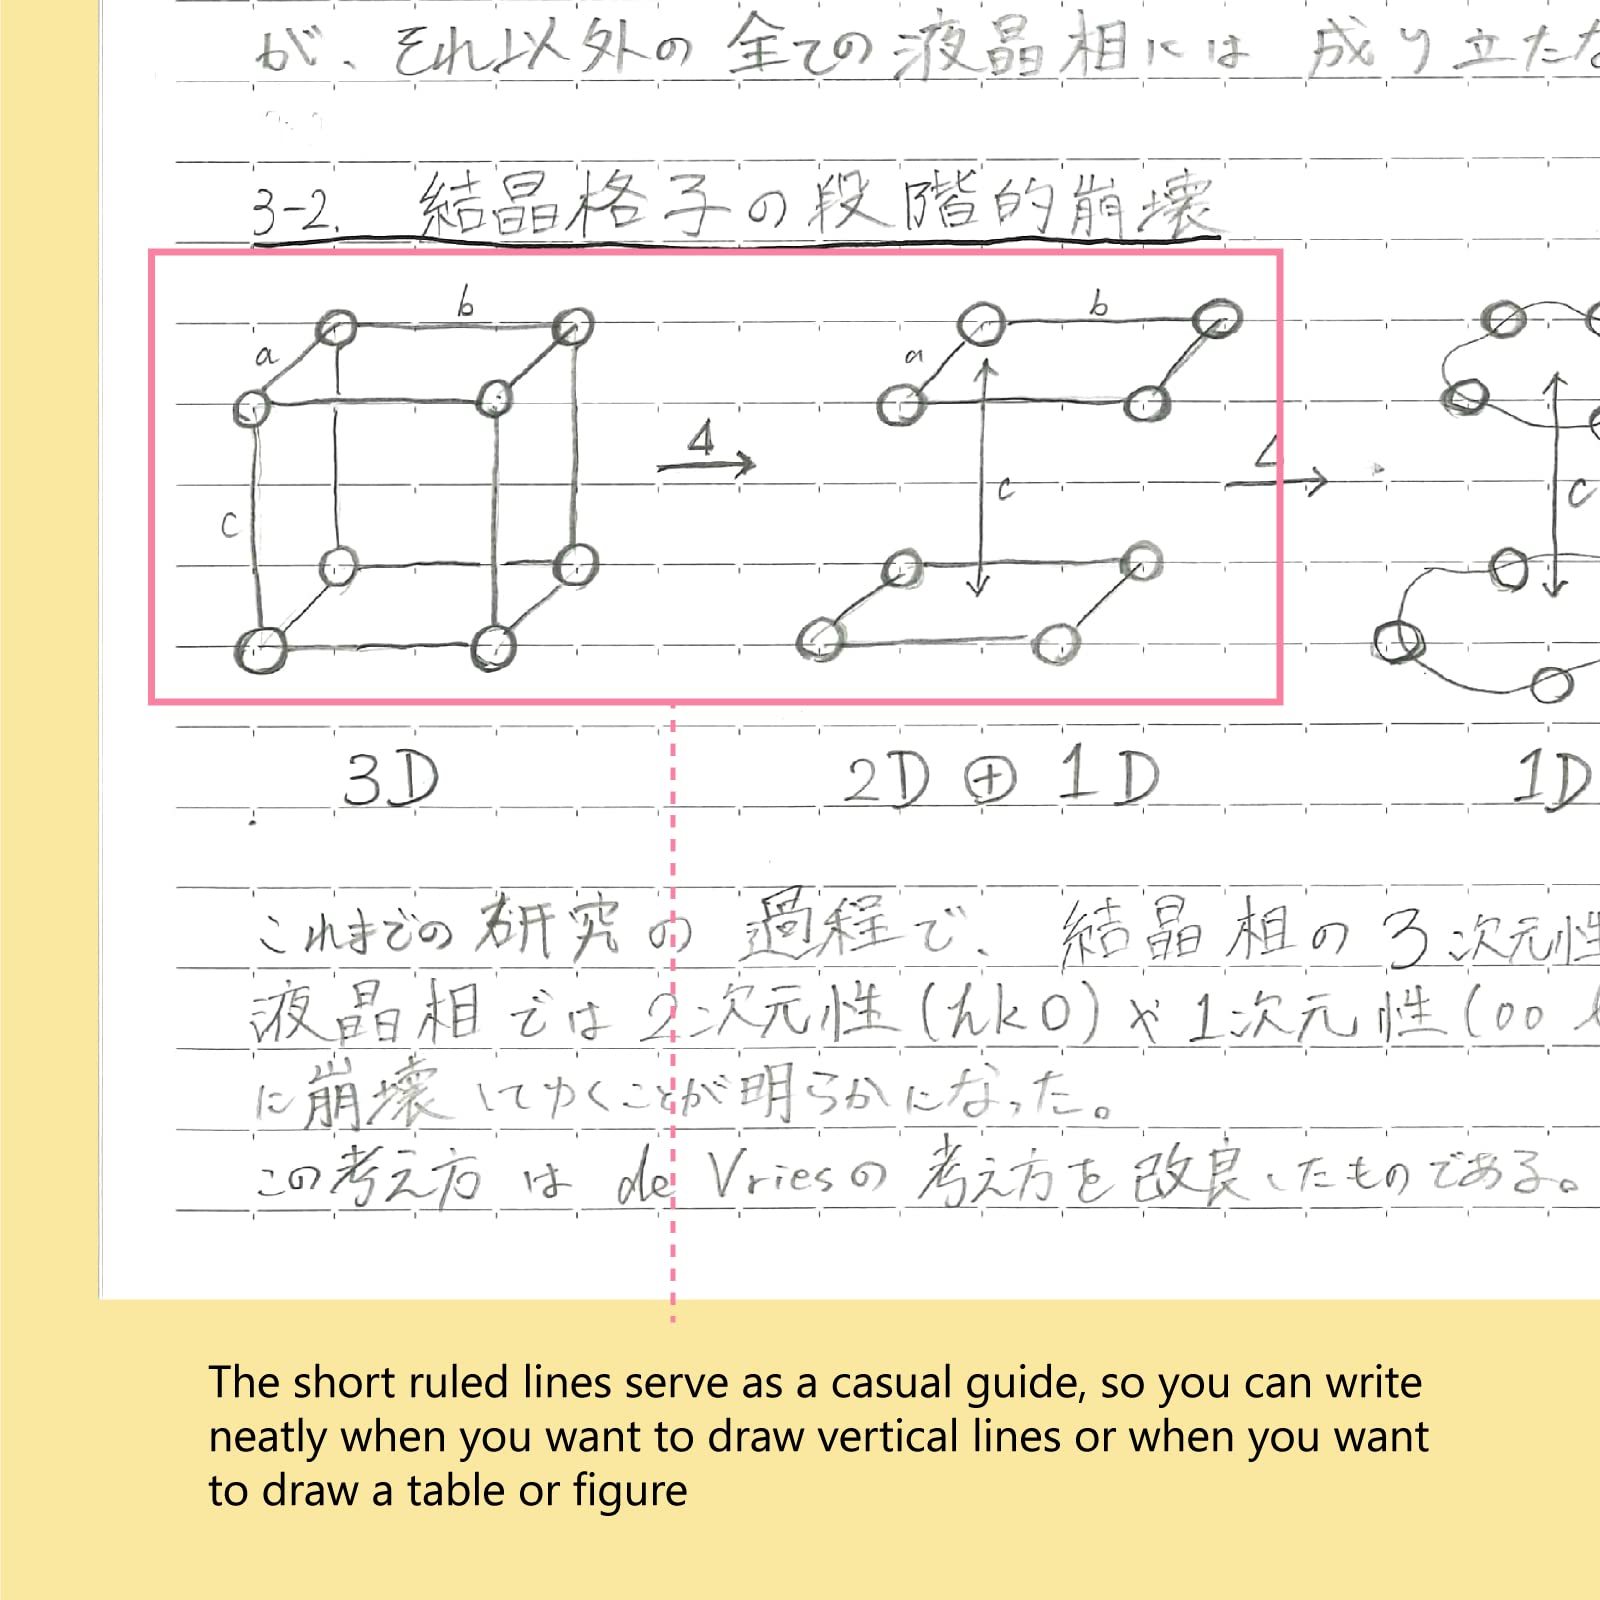 が、それ以外の全ての液晶相には 成り立たな
3-2. 結晶格子の段階的崩壊
b
b
a
a
4
c
c
c
3D
2D ⊕ 1D
1D
これまでの研究の過程で、結晶相の3次元性
液晶相では2次元性(hk0)や1次元性(00
に崩壊してゆくことが明らかになった。
この考え方は de Vriesの考え方を改良したものである。
The short ruled lines serve as a casual guide, so you can write
neatly when you want to draw vertical lines or when you want
to draw a table or figure